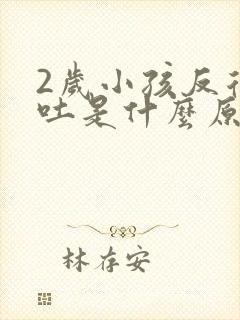 2歲小孩反
吐是什麼原
林存安